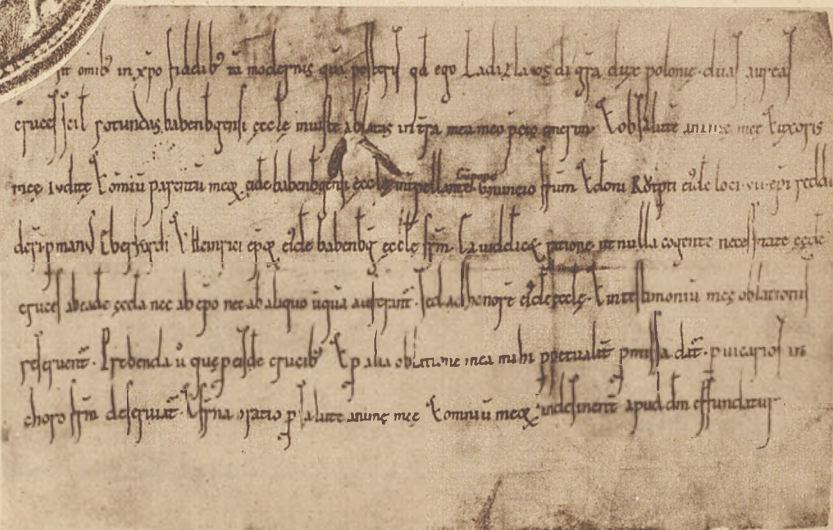 sit omib' in xpo fidelib' tā modernis quā posteris qd ego Ladizlavos di gra dux polonie duas aureas
cruces scil rotundas babenbgensi eccle iniuste ablatas in tra mea meo pcio emerim & ob salute anime mee & uxoris
mee iudite & omniū parentū meoꝝ eide babenbgensi eccle
deri p manus Eberhardi & Heinrici epoꝝ eide babenbg eccle frm. Ea videlicet ratione ut nulla cogente necessitate eede
cruces ab eade eccla nec ab epo nec ab aliquo ūquā auferant. Sed ad honore eide eccle & in testimoniū mee oblationis
reseruent. Prebenda ū que p eisde crucib' & p alia oblatione mea mihi ppetualit pmissa dat. p uicarios in
choro frm deseruiat. & frna oratio p salute anime mee & omniū meoꝝ indesinent apud dm effundatur